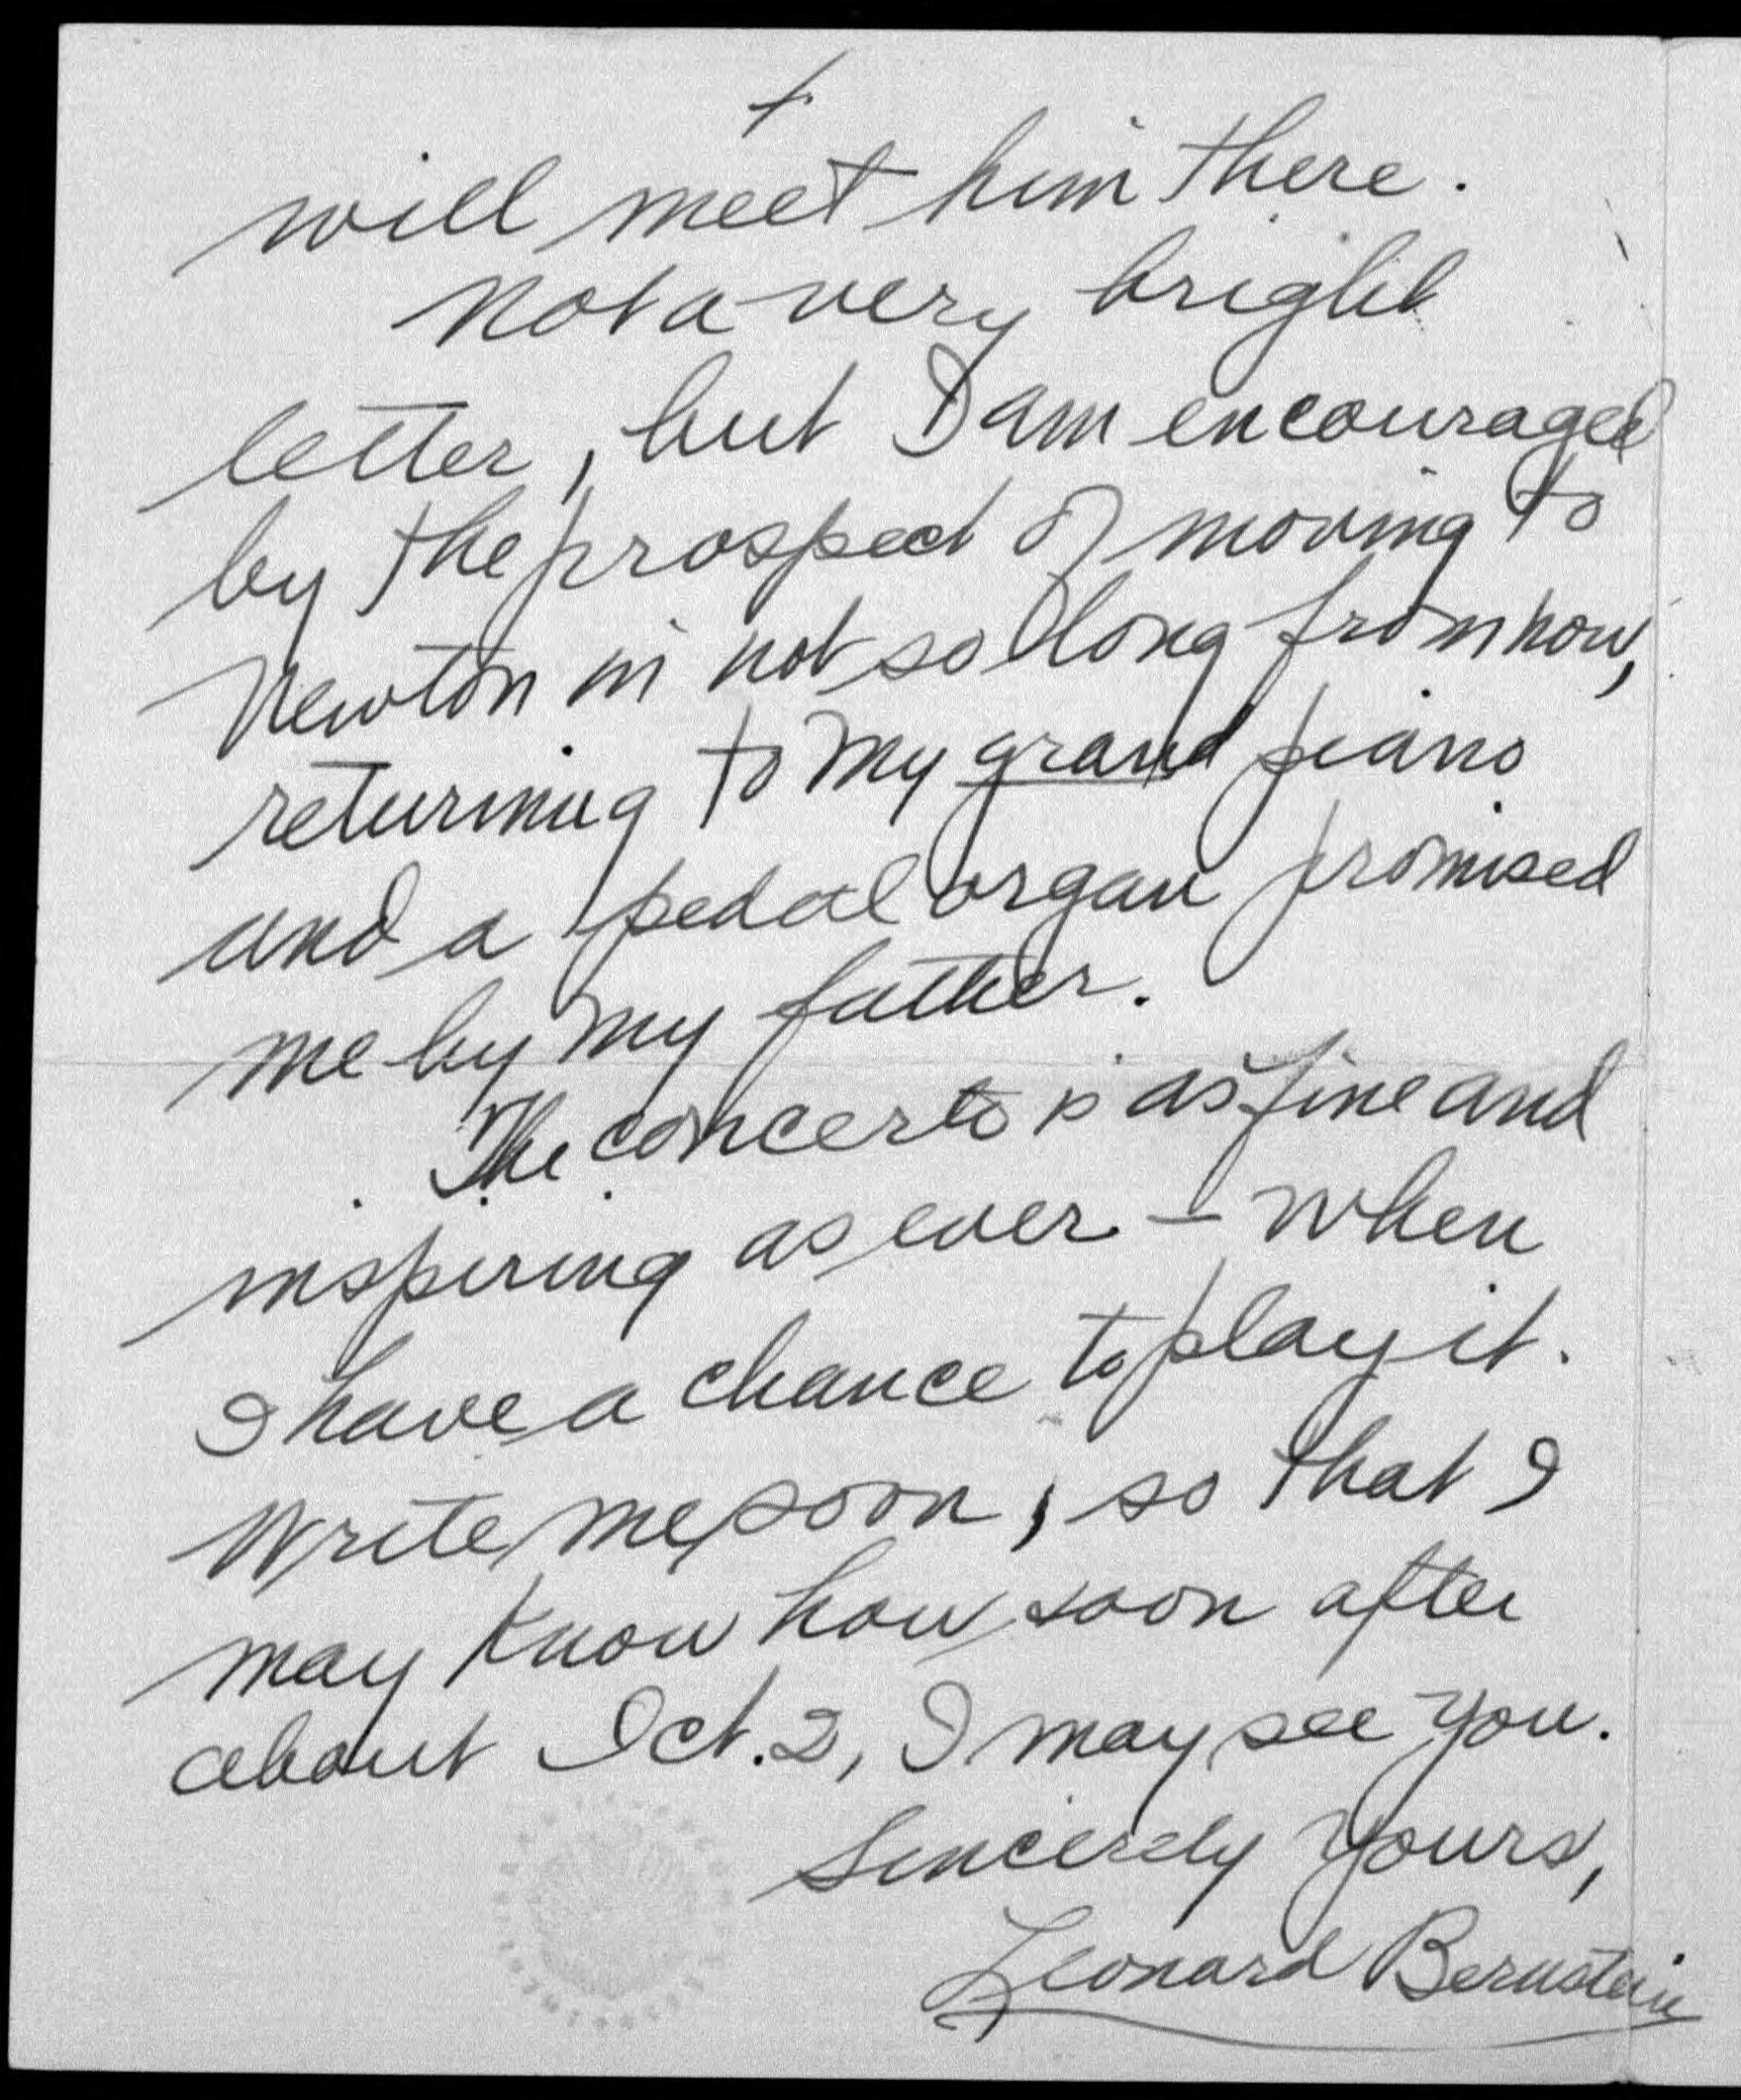 will meet him there.
Not a very bright
letter, but I am encouraged
by the prospect of moving to
Newton in not so long from now,
returning to my grand piano
and a pedal organ promised
me by my father.
The concerto is as fine and
inspiring as ever — when
I have a chance to play it.
Write me soon, so that I
may know how soon after
about Oct. 2, I may see you.
Sincerely Yours,
Leonard Bernstein